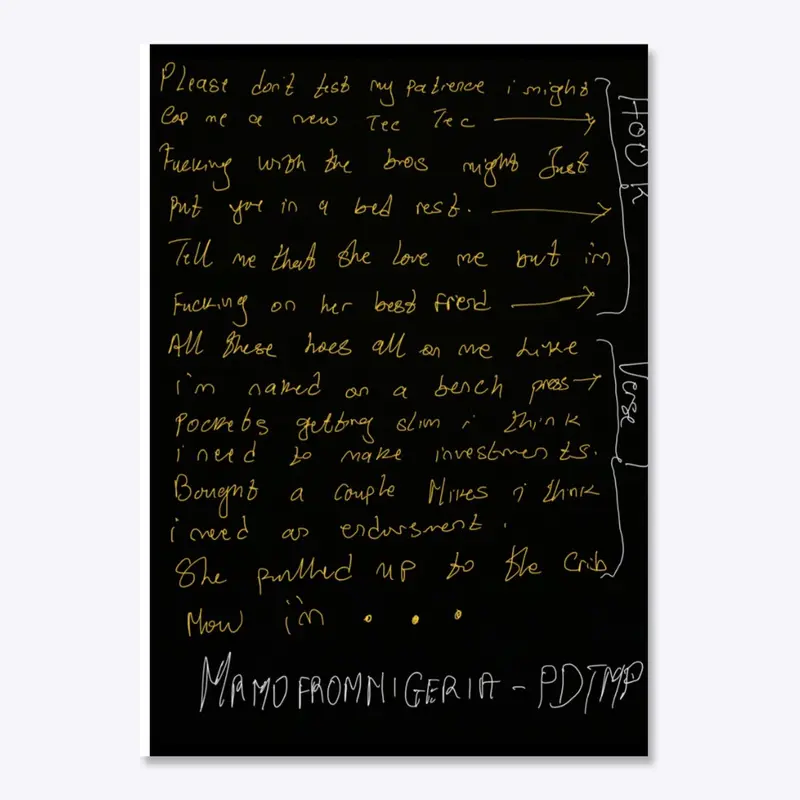 Please don't test my patience i might
Cop me a new Tec Tec
Fucking with the bros might Just
put you in a bed rest.
Tell me that she love me but i'm
Fucking on her best friend
All these hoes all on me Like
i'm naked on a bench press
pockets getting slim i think
i need to make investments.
Bought a couple Nikes i think
i need an endorsment.
She pulled up to the Crib
Now i'm . . .
HOOK
Verse 1
MAMOFROMNIGERIA - PDTMP